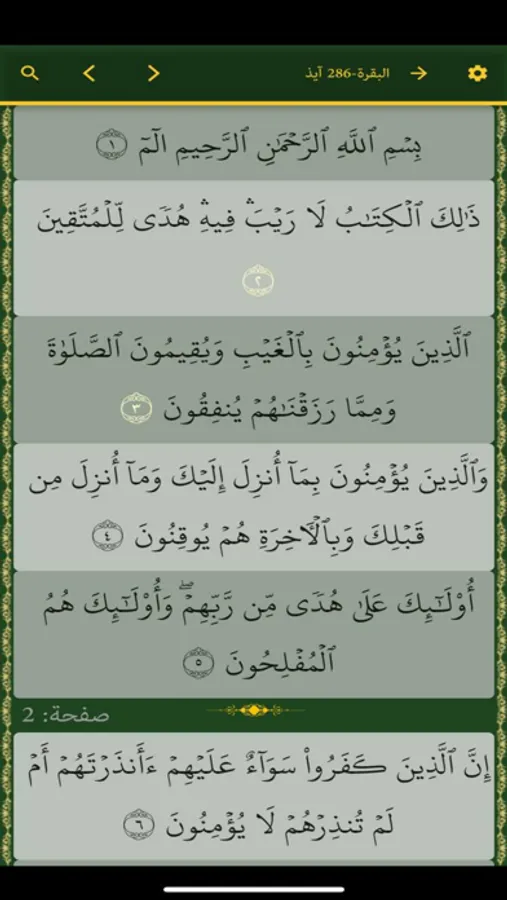 البقرة-286 آيذ
بِسۡمِ ٱللَّهِ ٱلرَّحۡمَٰنِ ٱلرَّحِيمِ الٓمٓ ١
ذَٰلِكَ ٱلۡكِتَٰبُ لَا رَيۡبَۛ فِيهِۛ هُدٗى لِّلۡمُتَّقِينَ
٢
ٱلَّذِينَ يُؤۡمِنُونَ بِٱلۡغَيۡبِ وَيُقِيمُونَ ٱلصَّلَوٰةَ
وَمِمَّا رَزَقۡنَٰهُمۡ يُنفِقُونَ ٣
وَٱلَّذِينَ يُؤۡمِنُونَ بِمَآ أُنزِلَ إِلَيۡكَ وَمَآ أُنزِلَ مِن
قَبۡلِكَ وَبِٱلۡأٓخِرَةِ هُمۡ يُوقِنُونَ ٤
أُوْلَٰٓئِكَ عَلَىٰ هُدٗى مِّن رَّبِّهِمۡۖ وَأُوْلَٰٓئِكَ هُمُ
ٱلۡمُفۡلِحُونَ ٥
صفحة: 2
إِنَّ ٱلَّذِينَ كَفَرُواْ سَوَآءٌ عَلَيۡهِمۡ ءَأَنذَرۡتَهُمۡ أَمۡ
لَمۡ تُنذِرۡهُمۡ لَا يُؤۡمِنُونَ ٦